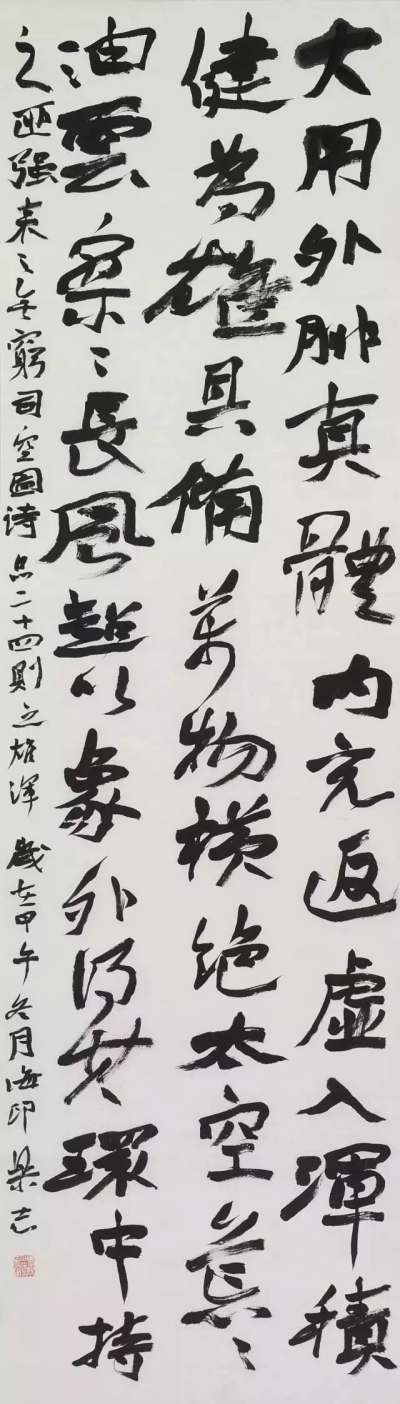 大用外腓真體内充返虛入渾積
健為雄具備萬物橫絕太空荒〻
油雲寥〻長風超以象外得其環中持
之匪强來之無窮司空圖詩品二十四則之雄渾 歲在甲午冬月海印 志